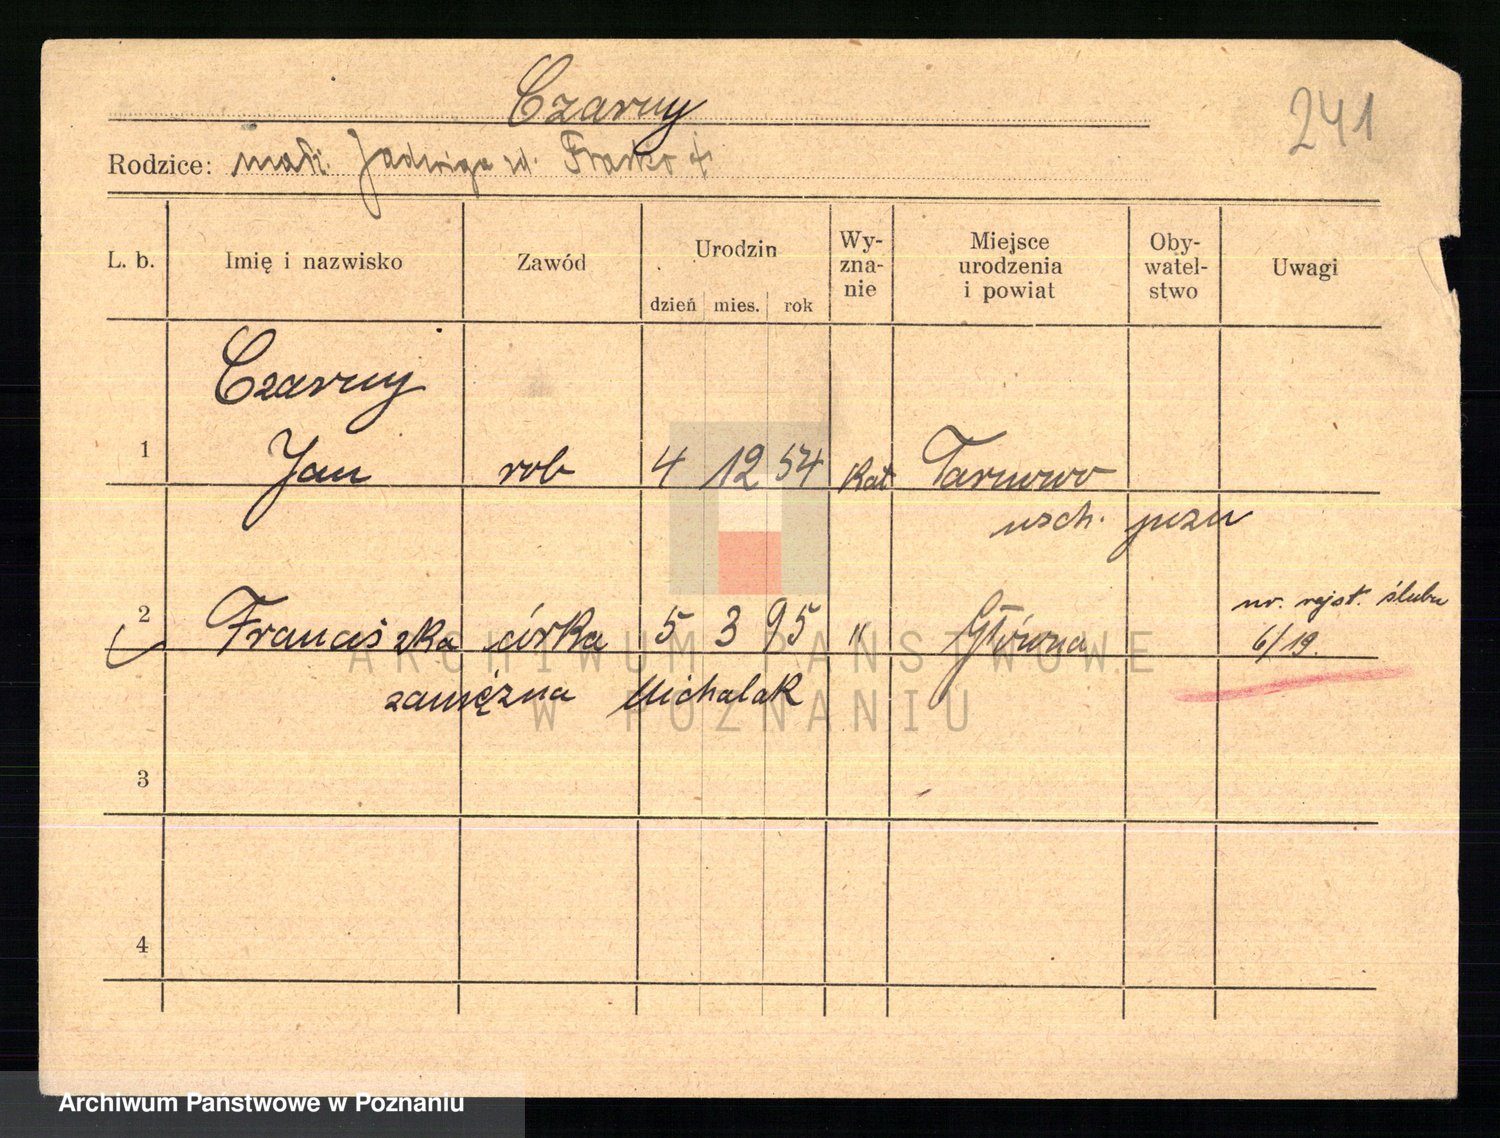 Czarny
241
Rodzice: małż. Jadwiga zd. Frasko +
L. b.
Imię i nazwisko
Zawód
Urodzin
dzień mies. rok
Wy-
zna-
nie
Miejsce
urodzenia
i powiat
Oby-
watel-
stwo
Uwagi
Czarny
1 Jan rob 4 12 54 kat Tarnowo
wsch. pozn
2 Franciszka córka 5 3 95 " Główna
nr. rejst. ślubu
6/19.
zamężna Michalak
3
4
ARCHIWUM PAŃSTWOWE
W POZNANIU
Archiwum Państwowe w Poznaniu